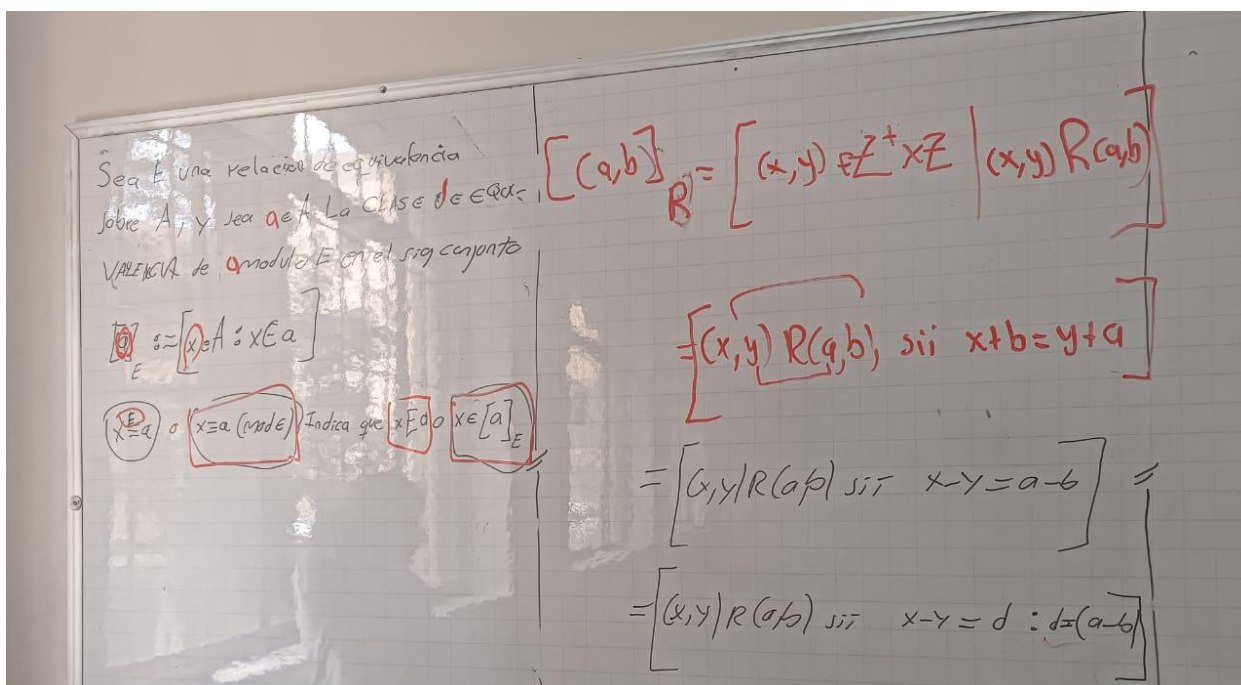 Sea E una relación de equivalencia
sobre A, y sea a∈A La CLASE de EQUI=
VALENCIA de a modulo E en el sig conjunto
[a]_E := [x∈A : xEa]
x≡a o x≡a (mod E) Indica que xEa o x∈[a]_E
[(a,b)]_R = [(x,y) ∈ Z⁺xZ | (x,y)R(a,b)]
=[(x,y) R(a,b), sii x+b=y+a]
=[(x,y)R(a,b) sii x-y=a-b]
=[(x,y)R(a,b) sii x-y=d : d=(a-b)]